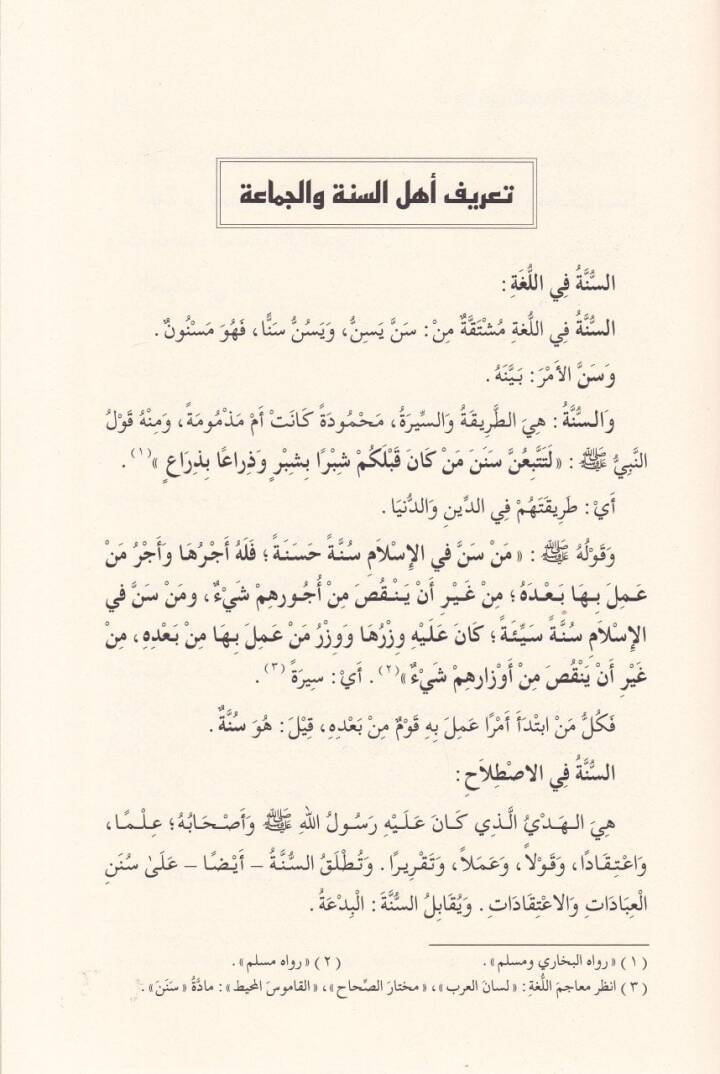 تعريف أهل السنة والجماعة
السُّنَّةُ فِي اللُّغَةِ :
السُّنَّةُ فِي اللُّغةِ مُشْتَقَّةٌ مِنْ: سَنَّ يَسِنُّ، وَيَسُنُّ سَنًّا، فَهُوَ مَسْنُونٌ .
وَسَنَّ الأَمْرَ: بَيَّنَهُ .
وَالسُّنَّةُ: هِيَ الطَّرِيقَةُ وَالسِّيرَةُ، مَحْمُودَةً كَانَتْ أَمْ مَذْمُومَةً، وَمِنْهُ قَوْلُ
النَّبِيُّ ﷺ : «لَتَتَّبِعُنَّ سَنَنَ مَنْ كَانَ قَبْلَكُمْ شِبْرًا بِشِبْرٍ وَذِراعًا بِذِرَاعٍ»(١) .
أَيْ: طَرِيقَتَهُمْ فِي الدِّينِ وَالدُّنيَا .
وَقَوْلُهُ ﷺ : «مَنْ سَنَّ في الإِسْلَامِ سُنَّةً حَسَنَةً؛ فَلَهُ أَجْرُهَا وَأَجْرُ مَنْ
عَمِلَ بِهَا بَعْدَهُ؛ مِنْ غَيْرِ أَنْ يَنْقُصَ مِنْ أُجُورِهِمْ شَيْءٌ، ومَنْ سَنَّ في
الإِسْلَامِ سُنَّةً سَيِّئَةً؛ كَانَ عَلَيْهِ وِزْرُهَا وَوِزْرُ مَنْ عَمِلَ بِهَا مِنْ بَعْدِهِ، مِنْ
غَيْرِ أَنْ يَنْقُصَ مِنْ أَوْزارِهِمْ شَيْءٌ»(٢) . أَيْ: سِيرَةً(٣) .
فَكُلُّ مَنْ ابْتَدَأَ أَمْرًا عَمِلَ بِهِ قَوْمٌ مِنْ بَعْدِهِ، قِيْلَ: هُوَ سُنَّةٌ .
السُّنَّةُ فِي الاصْطِلاَحِ :
هِيَ الهَدْيُ الَّذِي كَانَ عَلَيْهِ رَسُولُ اللهِ ﷺ وَأَصْحَابُهُ؛ عِلْمًا،
وَاعْتِقَادًا، وَقَوْلاً، وَعَمَلاً، وَتَقْرِيرًا . وَتُطْلَقُ السُّنَّةُ – أَيْضًا – عَلَىٰ سُنَنِ
الْعِبَادَاتِ وَالاعْتِقَادَاتِ . وَيُقَابِلُ السُّنَّةَ: الْبِدْعَةُ .
(١) «رواه البخاري ومسلم» . (٢) «رواه مسلم» .
(٣) انظر معاجمَ اللُّغةِ: «لسانَ العرب»، «مختارَ الصِّحاح»، «القاموسَ المُحيط»: مادَّةُ «سَنَنَ» .